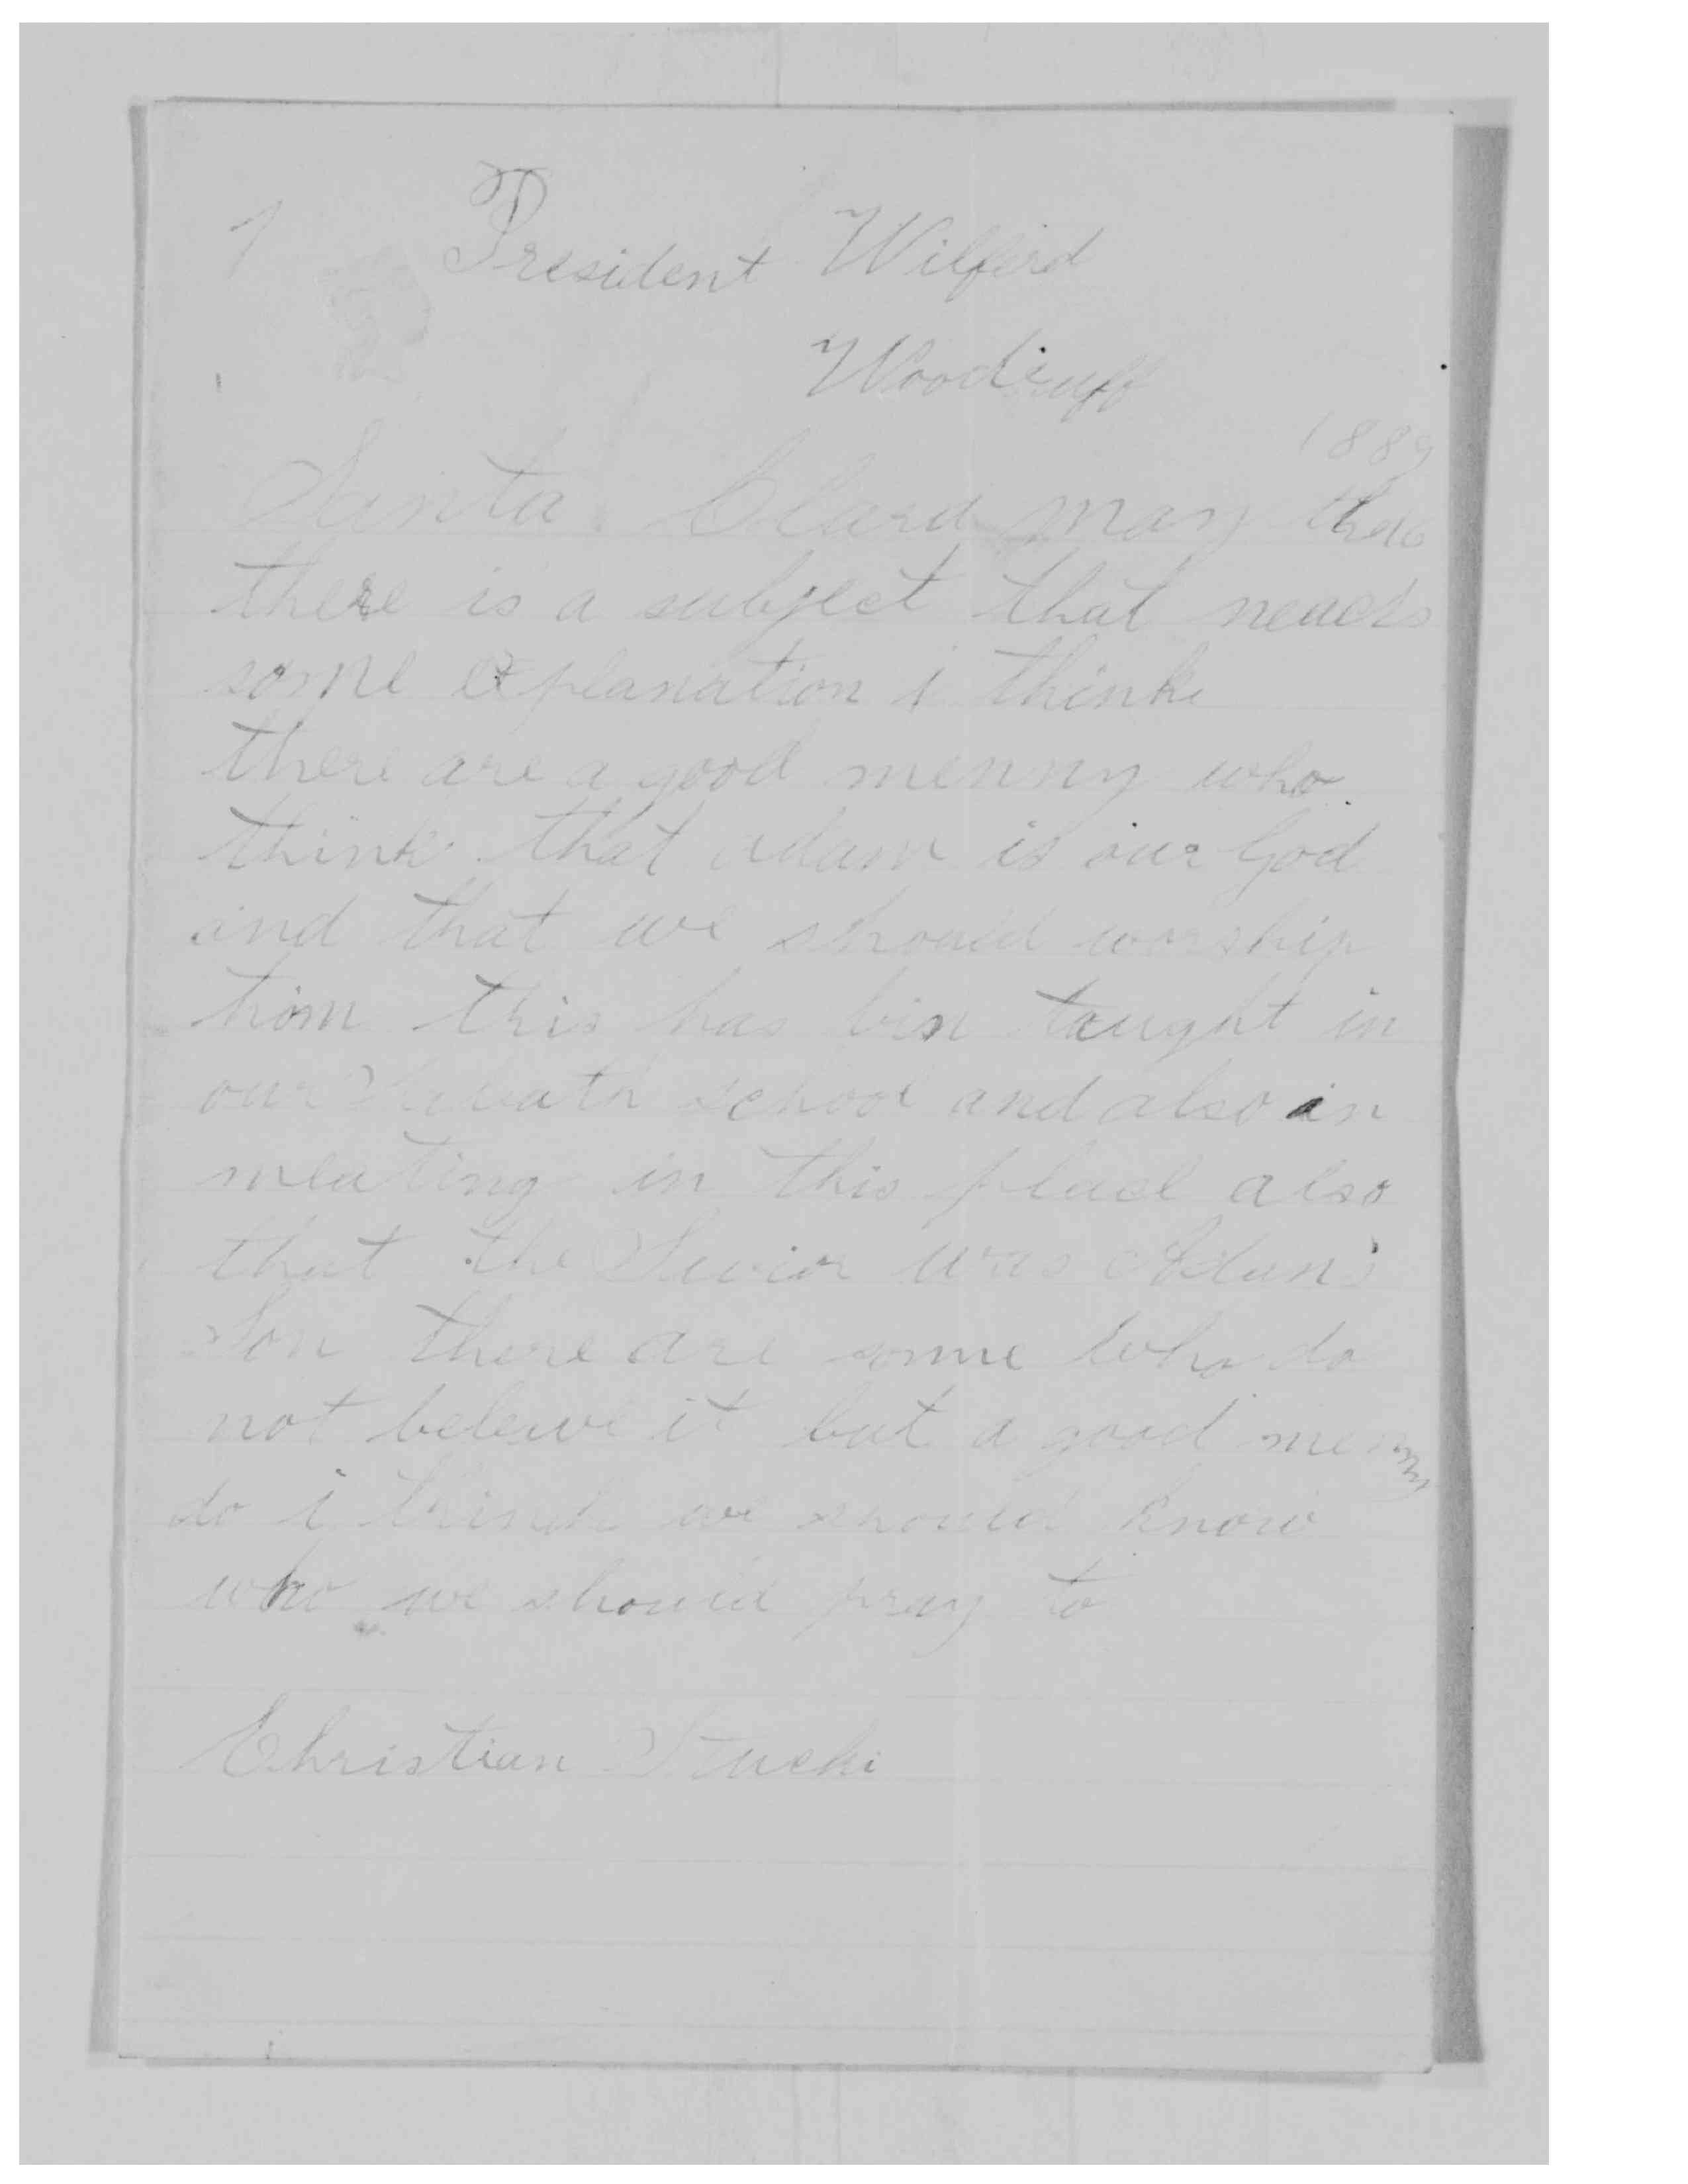 1 President Wilford
Woodruff
1889
Santa Clara may the
there is a subject that neaeds
some explanation i think
there are a good menny who
think that adam is our God
and that we should worship
him this has bin taught in
our Sabath school and also in
meating in this place also
that the Savior was Adams
Son there are some who do
not beleive it but a good menny
do i think we should know
who we should pray to
Christian Stucki